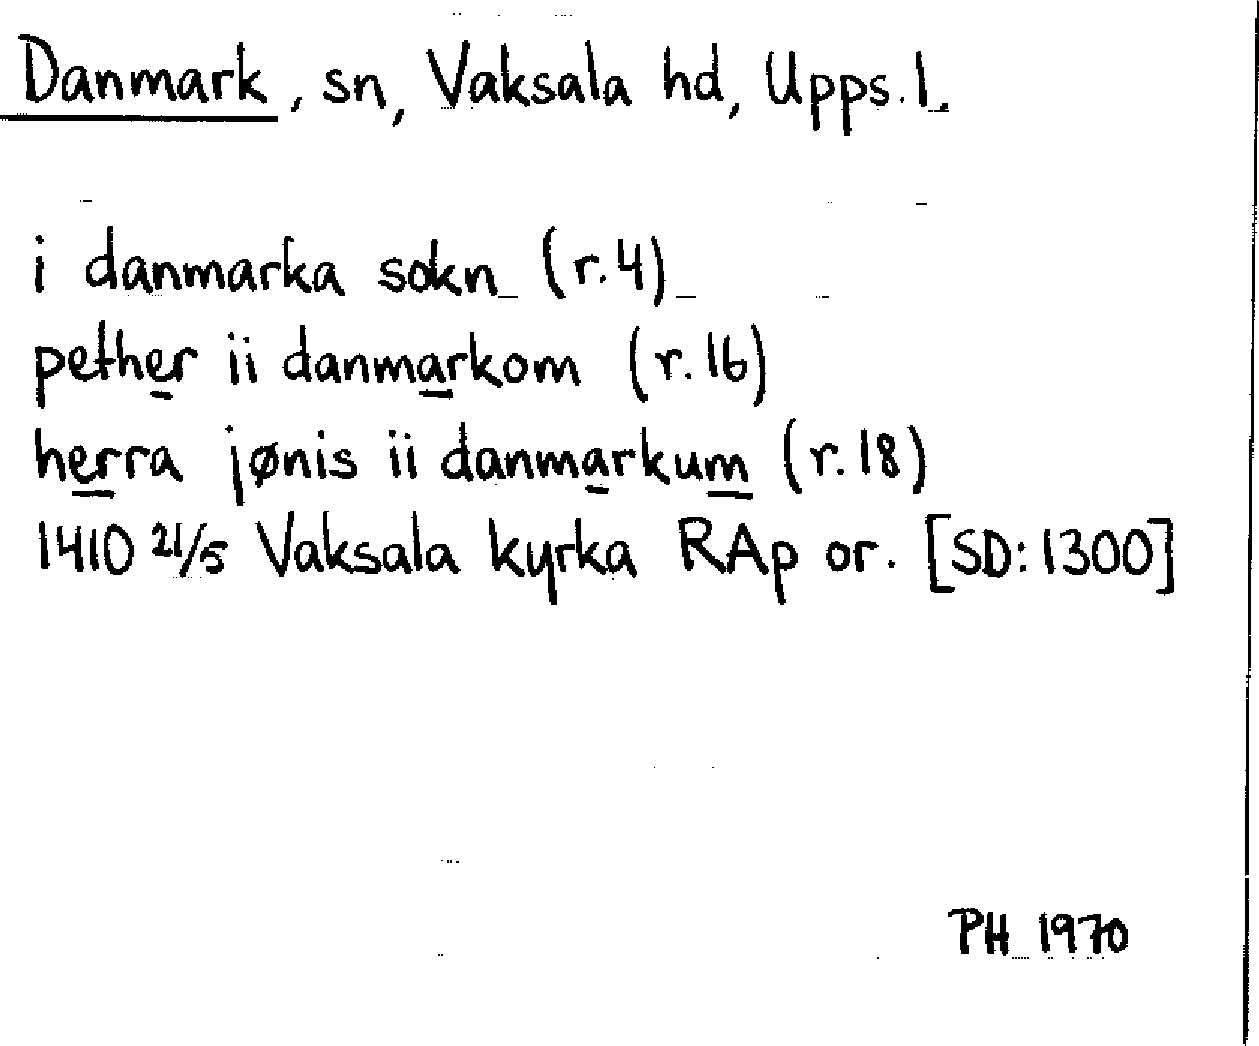 Danmark, sn, Vaksala hd, Upps. l.
i danmarka sokn (r. 4)
pether ii danmarkom (r. 16)
herra jønis ii danmarkum (r. 18)
1410 21/5 Vaksala kyrka RAp or. [SD: 1300]
PH 1970